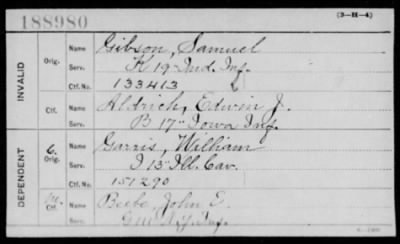 188980
(3-H-4)
INVALID
Orig.
Name Gibson, Samuel
Serv. K 19 Ind. Inf.
Ctf. No. 133413
Ctf.
Name Aldrich, Edwin J.
Serv. B 17" Iowa Inf.
DEPENDENT
C. Orig.
Name Garris, William
Serv. I 15 Ill. Cav.
Ctf. No. 151290
Ctf.
Name Beebe, John E.
Serv. N.Y. Inf.